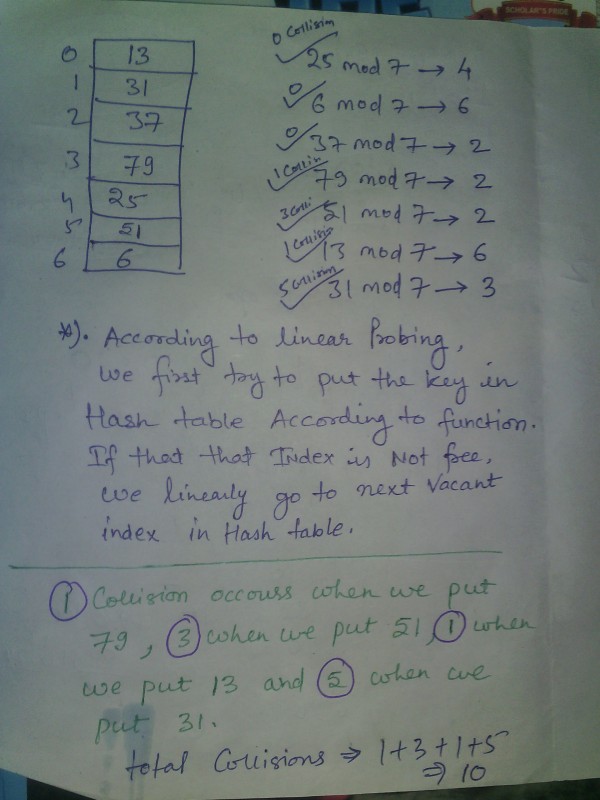 SCHOLAR'S PRIDE
0 13
1 31
2 37
3 79
4 25
5 51
6 6
0 Collision 25 mod 7 → 4
0 6 mod 7 → 6
0 37 mod 7 → 2
1 Collisin 79 mod 7 → 2
3 Colli 51 mod 7 → 2
1 Collisin 13 mod 7 → 6
5 Collision 31 mod 7 → 3
*). According to linear Probing,
we first try to put the key in
Hash table According to function.
If that that Index is Not free,
we linearly go to next Vacant
index in Hash table.
1 Collision occurss when we put
79, 3 when we put 51, 1 when
we put 13 and 5 when we
put 31.
total Collisions ⇒ 1+3+1+5
⇒ 10